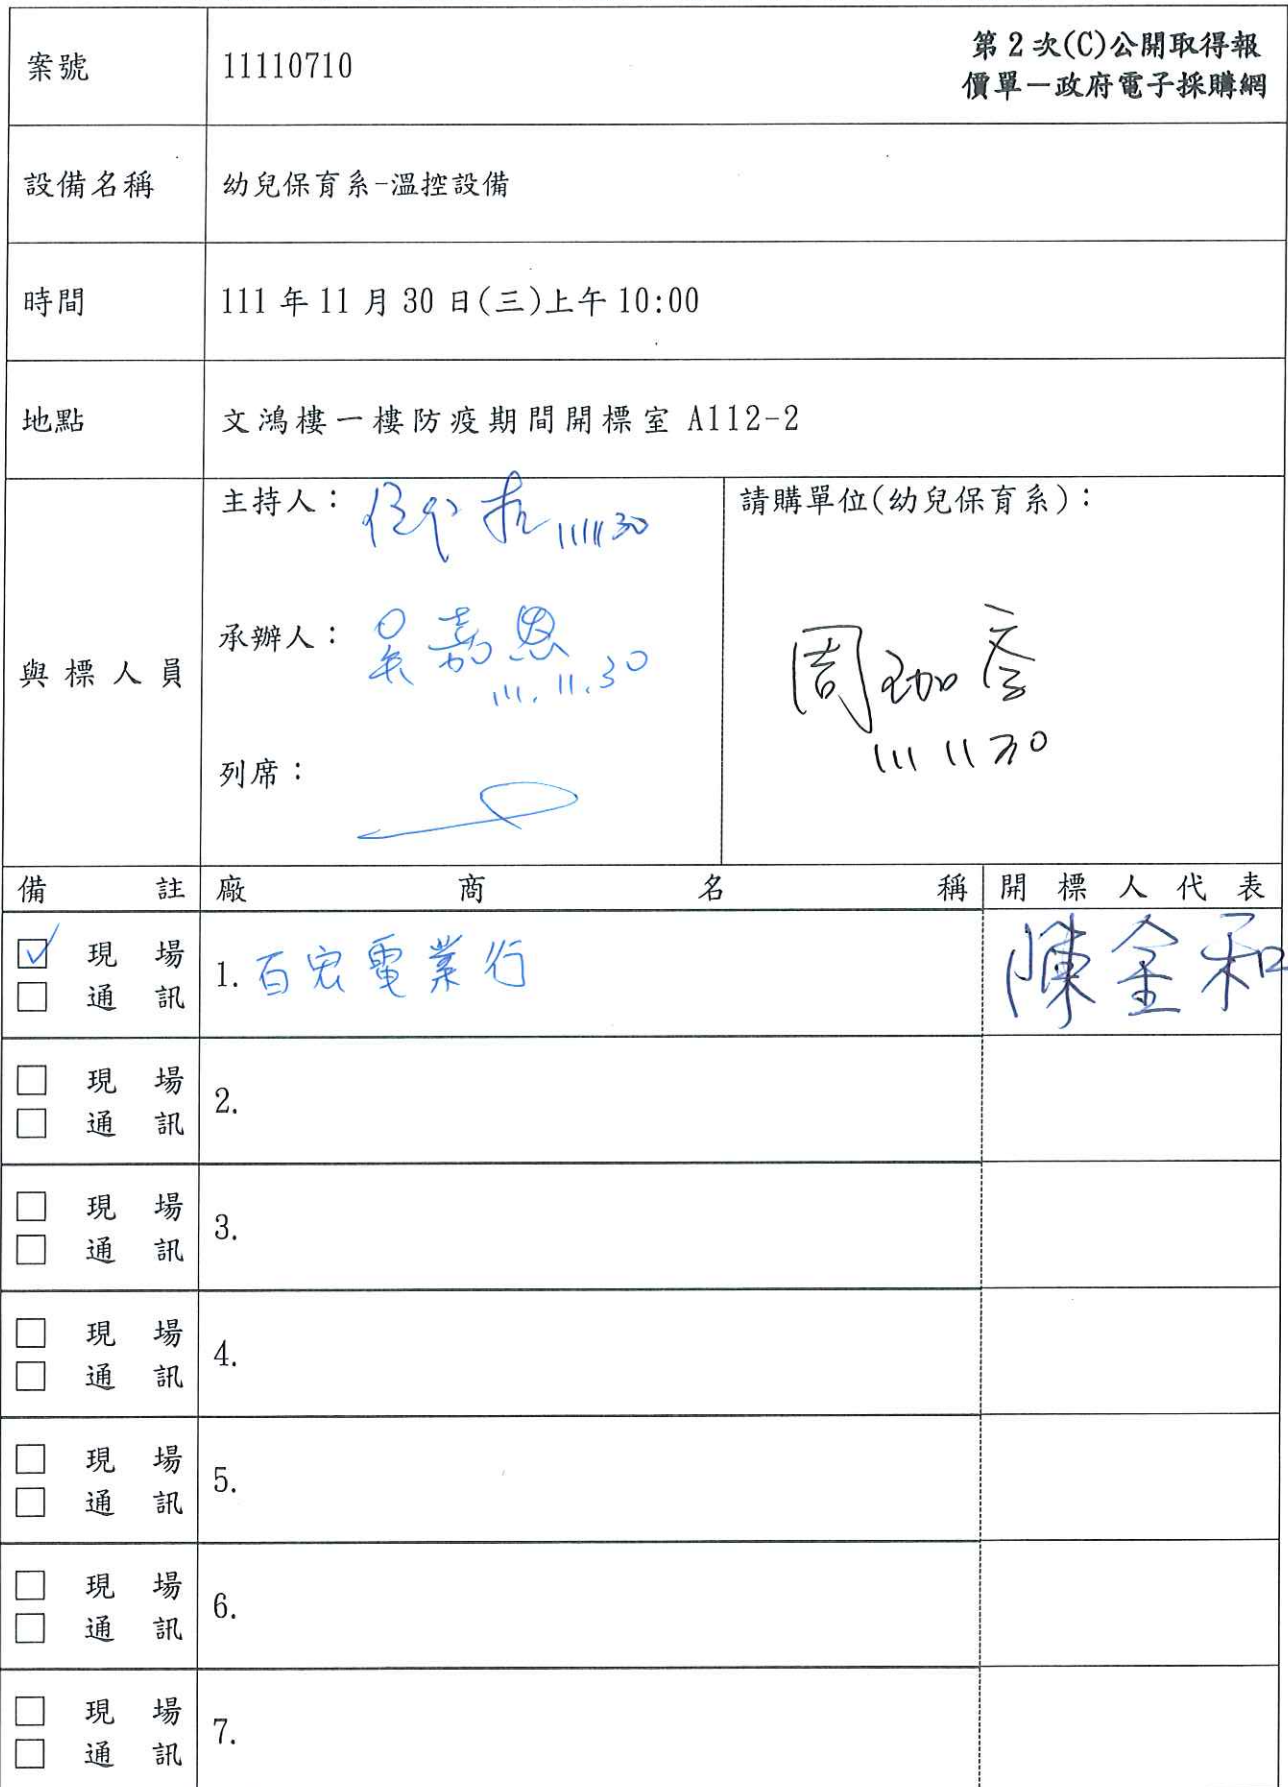 案號 11110710 第2次(C)公開取得報
價單－政府電子採購網
設備名稱 幼兒保育系-溫控設備
時間 111年11月30日(三)上午10:00
地點 文鴻樓一樓防疫期間開標室 A112-2
與標人員
主持人： 111130
承辦人：吳嘉恩
111.11.30
列席：
請購單位(幼兒保育系)：
周
111 11 30
備註 廠商名稱 開標人代表
☑現場 1. 百宏電業行 陳金和
□通訊
□現場 2.
□通訊
□現場 3.
□通訊
□現場 4.
□通訊
□現場 5.
□通訊
□現場 6.
□通訊
□現場 7.
□通訊